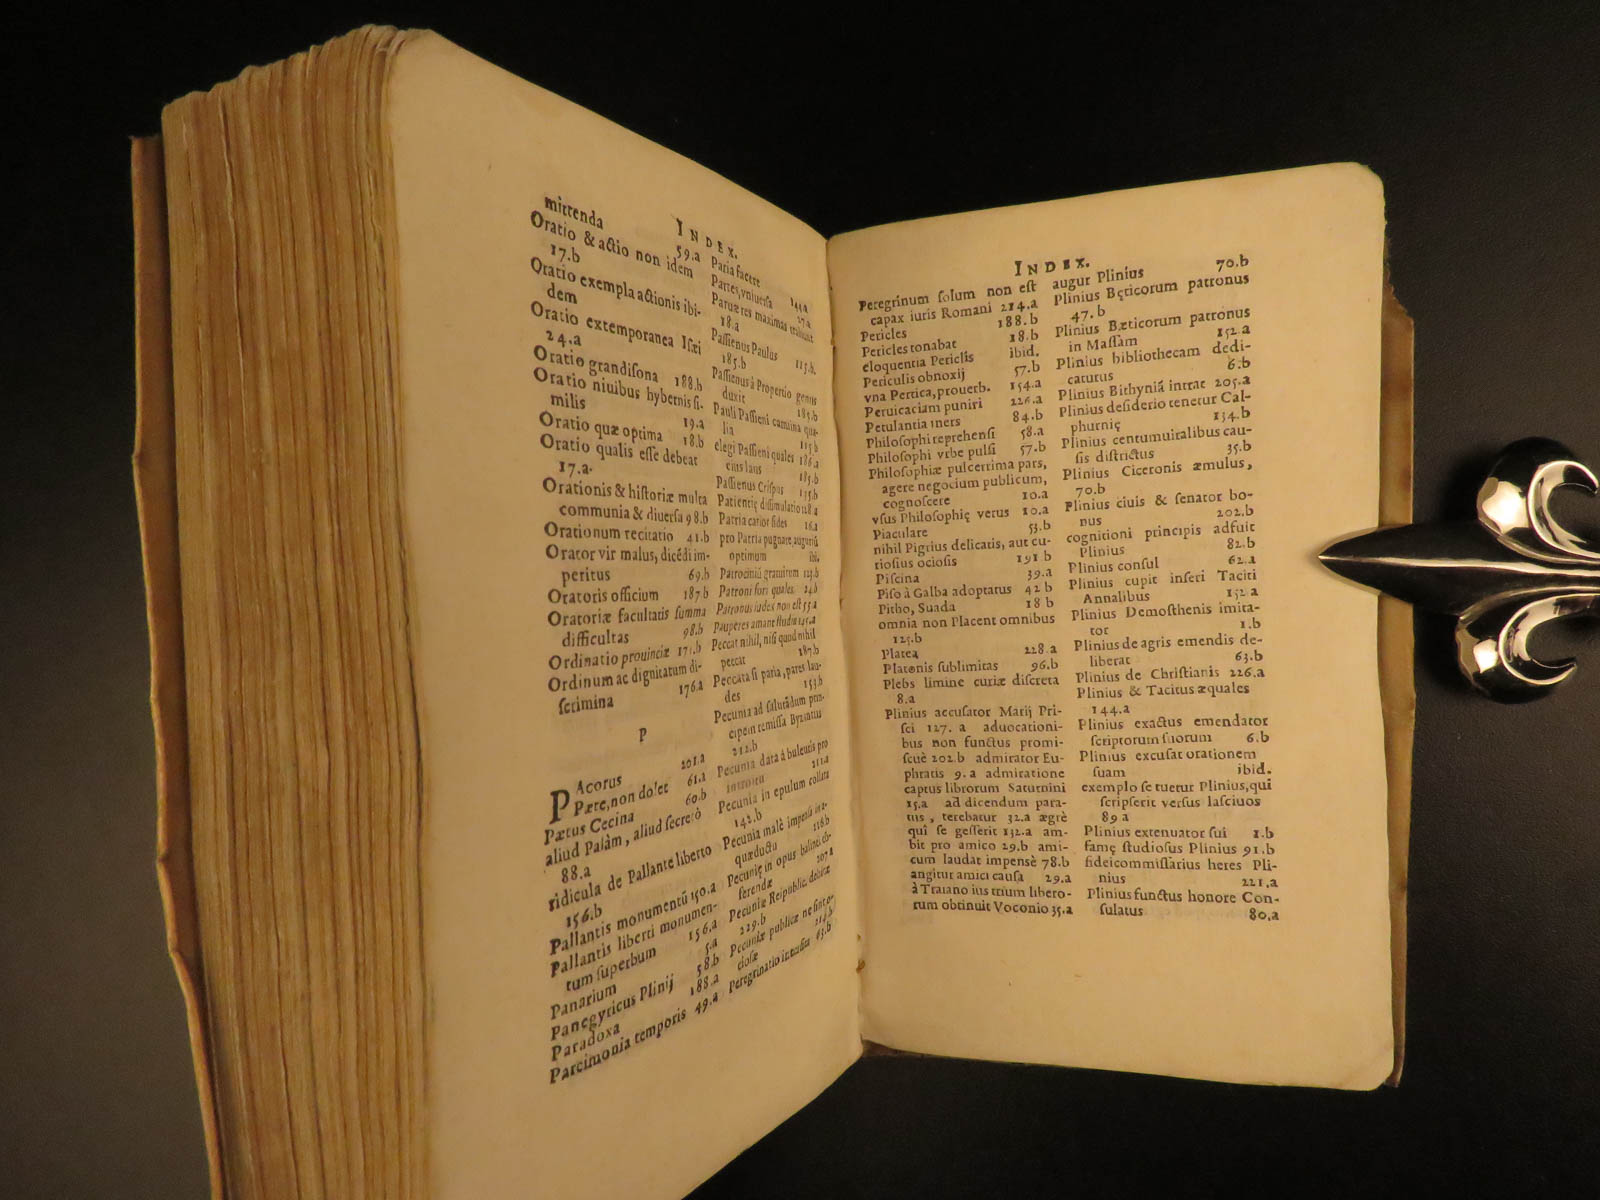 INDEX.
mittenda 59.a
Oratio & actio non idem
17.b
Oratio exempla actionis ibi-
dem
Oratio extemporanea Isæi
24.a
Oratio grandisona 188.b
Oratio niuibus hybernis si-
milis 19.a
Oratio quæ optima 18.b
Oratio qualis esse debeat
17.a.
Orationis & historiæ multa
communia & diuersa 98.b
Orationum recitatio 41.b
Orator vir malus, dicẽdi im-
peritus 69.b
Oratoris officium 187.b
Oratoriæ facultatis summa
difficultas 98.b
Ordinatio prouinciæ 171.b
Ordinum ac dignitatum di-
scrimina 176.a
P
PAcorus 201.a
Pæte, non dolet 61.a
Pætus Cecina 60.b
aliud Palàm, aliud secretò
88.a
ridicula de Pallante liberto
156.b
Pallantis monumentũ 150.a
Pallantis liberti monumen-
tum superbum 156.a
Panarium 5.a
Panegyricus Plinij 58.b
Paradoxa 188.a
Parcimonia temporis 49.a
Paria facere 144.a
Partes, vniuersa 27.a
Paruæ res maximas
18.a
Passienus Paulus 115.b.
185.b
Passienus à Propertio genus
duxit 185.b
Pauli Passieni carmina qua-
lia 115.b
elegi Passieni quales 186.a
eius laus 185.b
Passienus Crispus 175.b
Patientię dissimulatio 128.a
Patria carior fides 16.a
pro Patria pugnare, auguriũ
optimum ibi.
Patrociniũ gratuitum 123.b
Patroni fori quales 24.b
Patronus iudex non est 55.a
Pauperes amant studia 145.a
Peccat nihil, nisi quod nihil
peccat 187.b
Peccata si paria, pares lau-
des 153.b
Pecunia ad salutãdum prin-
cipem remissa Byzantius
212.b
Pecunia data à buleutis pro
introitu 211.a
Pecunia in epulum collata
142.b
Pecunia malè impensa in a-
quæductu 218.b
Pecunię in opus balinei of-
ferendæ 207.a
Pecuniæ Reipublic. debitæ
229.b
Pecuniæ publicæ ne sint o-
ciosæ 214.b
Peregrinatio 63.b
INDEX.
Peregrinum solum non est
capax iuris Romani 214.a
Pericles 188.b
Pericles tonabat 18.b
eloquentia Periclis ibid.
Periculis obnoxij 57.b
vna Pertica, prouerb. 154.a
Peruicaciam puniri 226.a
Petulantia iners 84.b
Philosophi reprehensi 58.a
Philosophi vrbe pulsi 57.b
Philosophiæ pulcerrima pars,
agere negocium publicum,
cognoscere 10.a
vsus Philosophię verus 10.a
Piaculare 53.b
nihil Pigrius delicatis, aut cu-
riosius ociosis 191 b
Piscina 39.a
Piso à Galba adoptatus 42 b
Pitho, Suada 18 b
omnia non Placent omnibus
125.b
Platea 228.a
Platonis sublimitas 96.b
Plebs limine curiæ discreta
8.a
Plinius accusator Marij Pri-
sci 127. a aduocationi-
bus non functus promi-
scuè 202.b admirator Eu-
phratis 9.a admiratione
captus librorum Saturnini
15.a ad dicendum para-
tus, terebatur 32.a ægrè
qui se gesserit 132.a am-
bit pro amico 29.b ami-
cum laudat impensè 78.b
angitur amici causa 29.a
à Traiano ius trium libero-
rum obtinuit Voconio 35.a
augur Plinius 70.b
Plinius Bęticorum patronus
47.b
Plinius Bæticorum patronus
in Massam 152.a
Plinius bibliothecam dedi-
caturus 6.b
Plinius Bithyniã intrat 205.a
Plinius desiderio tenetur Cal-
phurnię 134.b
Plinius centumuiralibus cau-
sis districtus 35.b
Plinius Ciceronis æmulus,
70.b
Plinius ciuis & senator bo-
nus 202.b
cognitioni principis adfuit
Plinius 82.b
Plinius consul 62.a
Plinius cupit inseri Taciti
Annalibus 152.a
Plinius Demosthenis imita-
tor 1.b
Plinius de agris emendis de-
liberat 63.b
Plinius de Christianis 226.a
Plinius & Tacitus æquales
144.a
Plinius exactus emendator
scriptorum suorum 6.b
Plinius excusat orationem
suam ibid.
exemplo se tuetur Plinius, qui
scripserit versus lasciuos
89 a
Plinius extenuator sui 1.b
famę studiosus Plinius 91.b
fideicommissarius heres Pli-
nius 221.a
Plinius functus honore Con-
sulatus 80.a